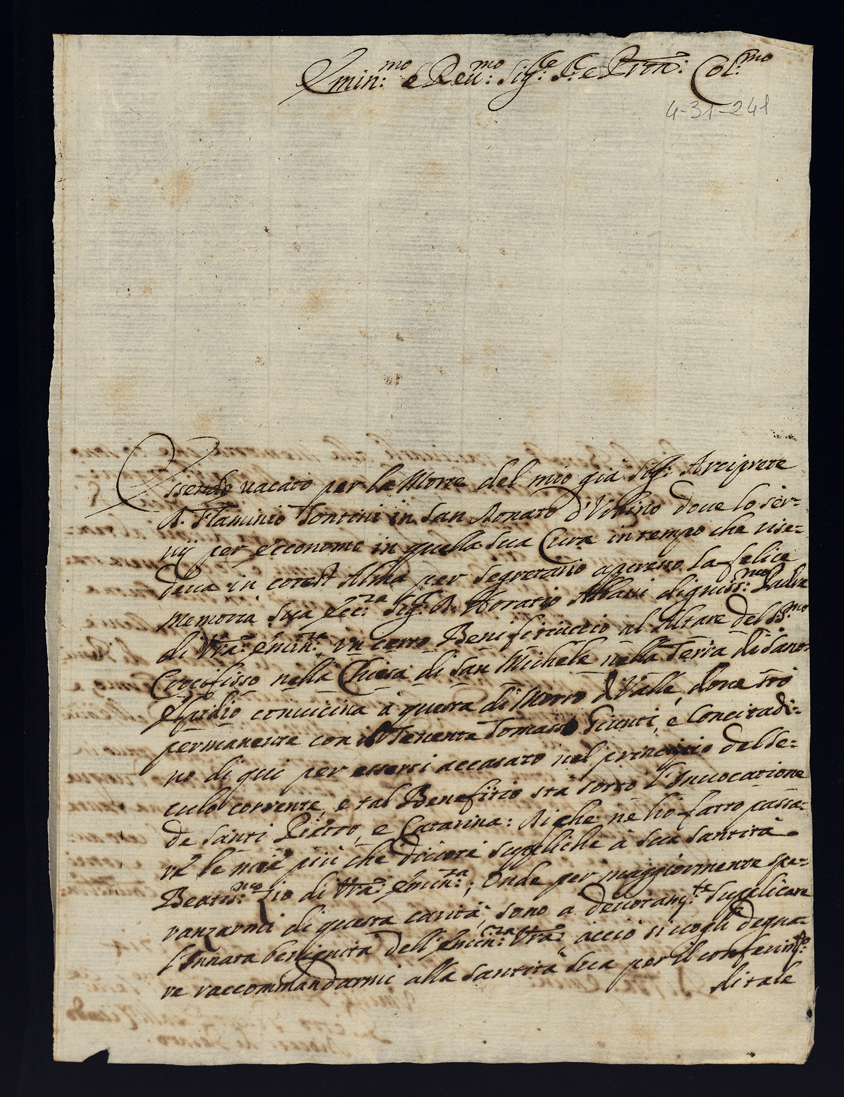 Emin:mo e Reu:mo Sig:re S.re e Pron: Col:mo
4-31-241
Essendo uacato per la Morte del mio già Sig:r Arciprete
D. Flaminio Tontini in San Donato d'Vrbino doue lo ser-
uij per econome in quella sua Cura in tempo che risie-
deua in cotest' Alma per Segretario appresso la felice
memoria Sua Ecc:za Sig:r D. Horatio Albani digniss:mo Padre
di Vra Emin:za vn certo Benefitiuccio al Altare del SS:mo
Crocefisso nella Chiesa di San Michele nella Terra di Sant'
Elpidio conuicina à questa di Morro di Valle, doue stò
permanente con il Tenente Tomasso Giunti, è Concitadi-
no di qui per essersi accasato nel principio del se-
culo corrente, e tal Benefitio stà sotto l'Inuocatione
de Santi Pietro, e Catarina: Di che ne hò fatto passa-
re le mie più che diuote suppliche à Sua Santità
Beatis:mo Zio di Vra Emin:za; Onde per maggiormente spe-
ranzarmi di questa carità sono a deuotam:te Supplicare
l'Innata benignità dell'Emin:za Vra, acciò si uogli degna-
re raccommandarmi alla Santità Sua per il conferim:to
di tale